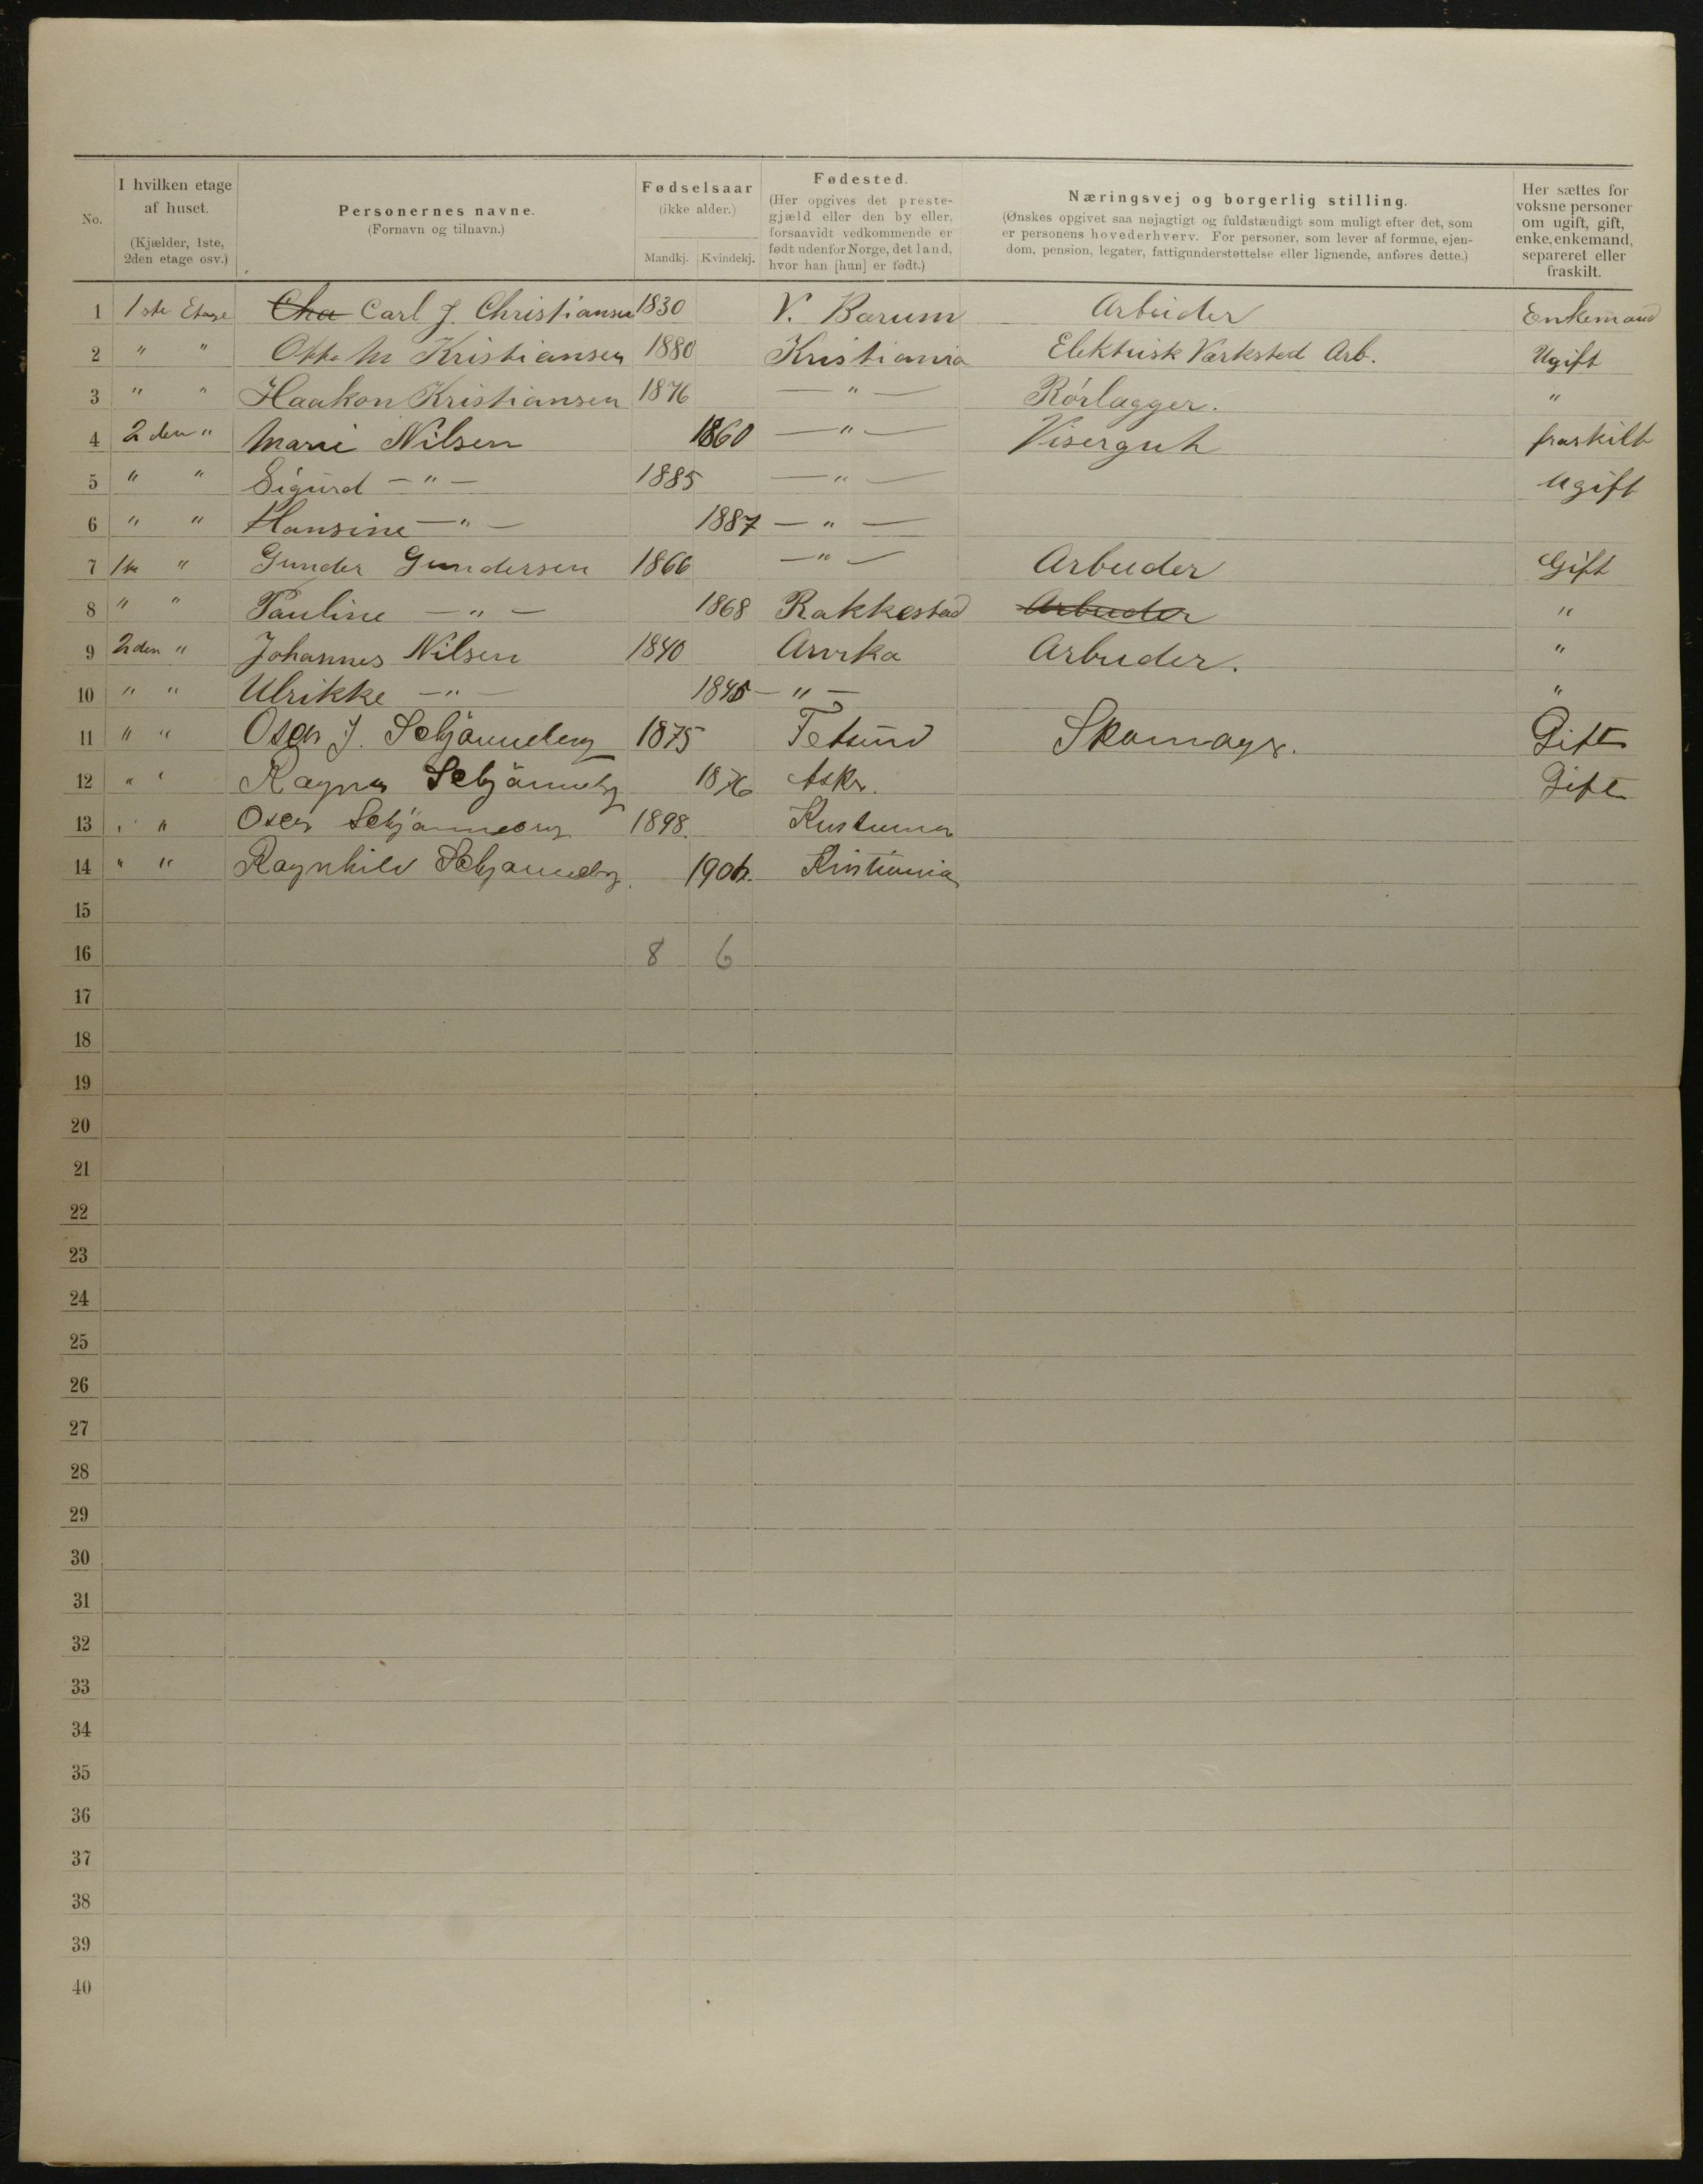 No.
I hvilken etage
af huset.
(Kjælder, 1ste,
2den etage osv.)
Personernes navne.
(Fornavn og tilnavn.)
Fødselsaar
(ikke alder.)
Mandkj. Kvindekj.
Fødested.
(Her opgives det preste-
gjæld eller den by eller,
forsaavidt vedkommende er
født udenfor Norge, det land,
hvor han [hun] er født.)
Næringsvej og borgerlig stilling.
(Ønskes opgivet saa nøjagtigt og fuldstændigt som muligt efter det, som
er personens hovederhverv. For personer, som lever af formue, ejen-
dom, pension, legater, fattigunderstøttelse eller lignende, anføres dette.)
Her sættes for
voksne personer
om ugift, gift,
enke, enkemand,
separeret eller
fraskilt.
1 1ste Etage Cha Carl J. Christiansen 1830 V. Barum Arbeider Enkemand
2 " " Otto M Kristiansen 1880 Kristiania Elektrisk Varksted Arb. Ugift
3 " " Haakon Kristiansen 1876 — " — Rörlagger. "
4 2den " Marie Nilsen 1860 — " — Visergut fraskilt
5 " " Sigurd — " — 1885 — " — Ugift
6 " " Hansine — " — 1887 — " —
7 1ste " Gunder Gundersen 1866 — " — Arbeider Gift
8 " " Pauline — " — 1868 Rakkestad Arbeider "
9 2den " Johannes Nilsen 1840 Arvika Arbeider. "
10 " " Ulrikke — " — 1845 — " — "
11 " " Oscar J. Schjönneberg 1875 Fetsund Skomager. Gift
12 " " Ragna Schjönneberg 1876 Asker. Gift
13 " " Oscar Schjönneberg 1898. Kristiania
14 " " Ragnhild Schjonneberg. Kristiania
15
16 8 6
17
18
19
20
21
22
23
24
25
26
27
28
29
30
31
32
33
34
35
36
37
38
39
40